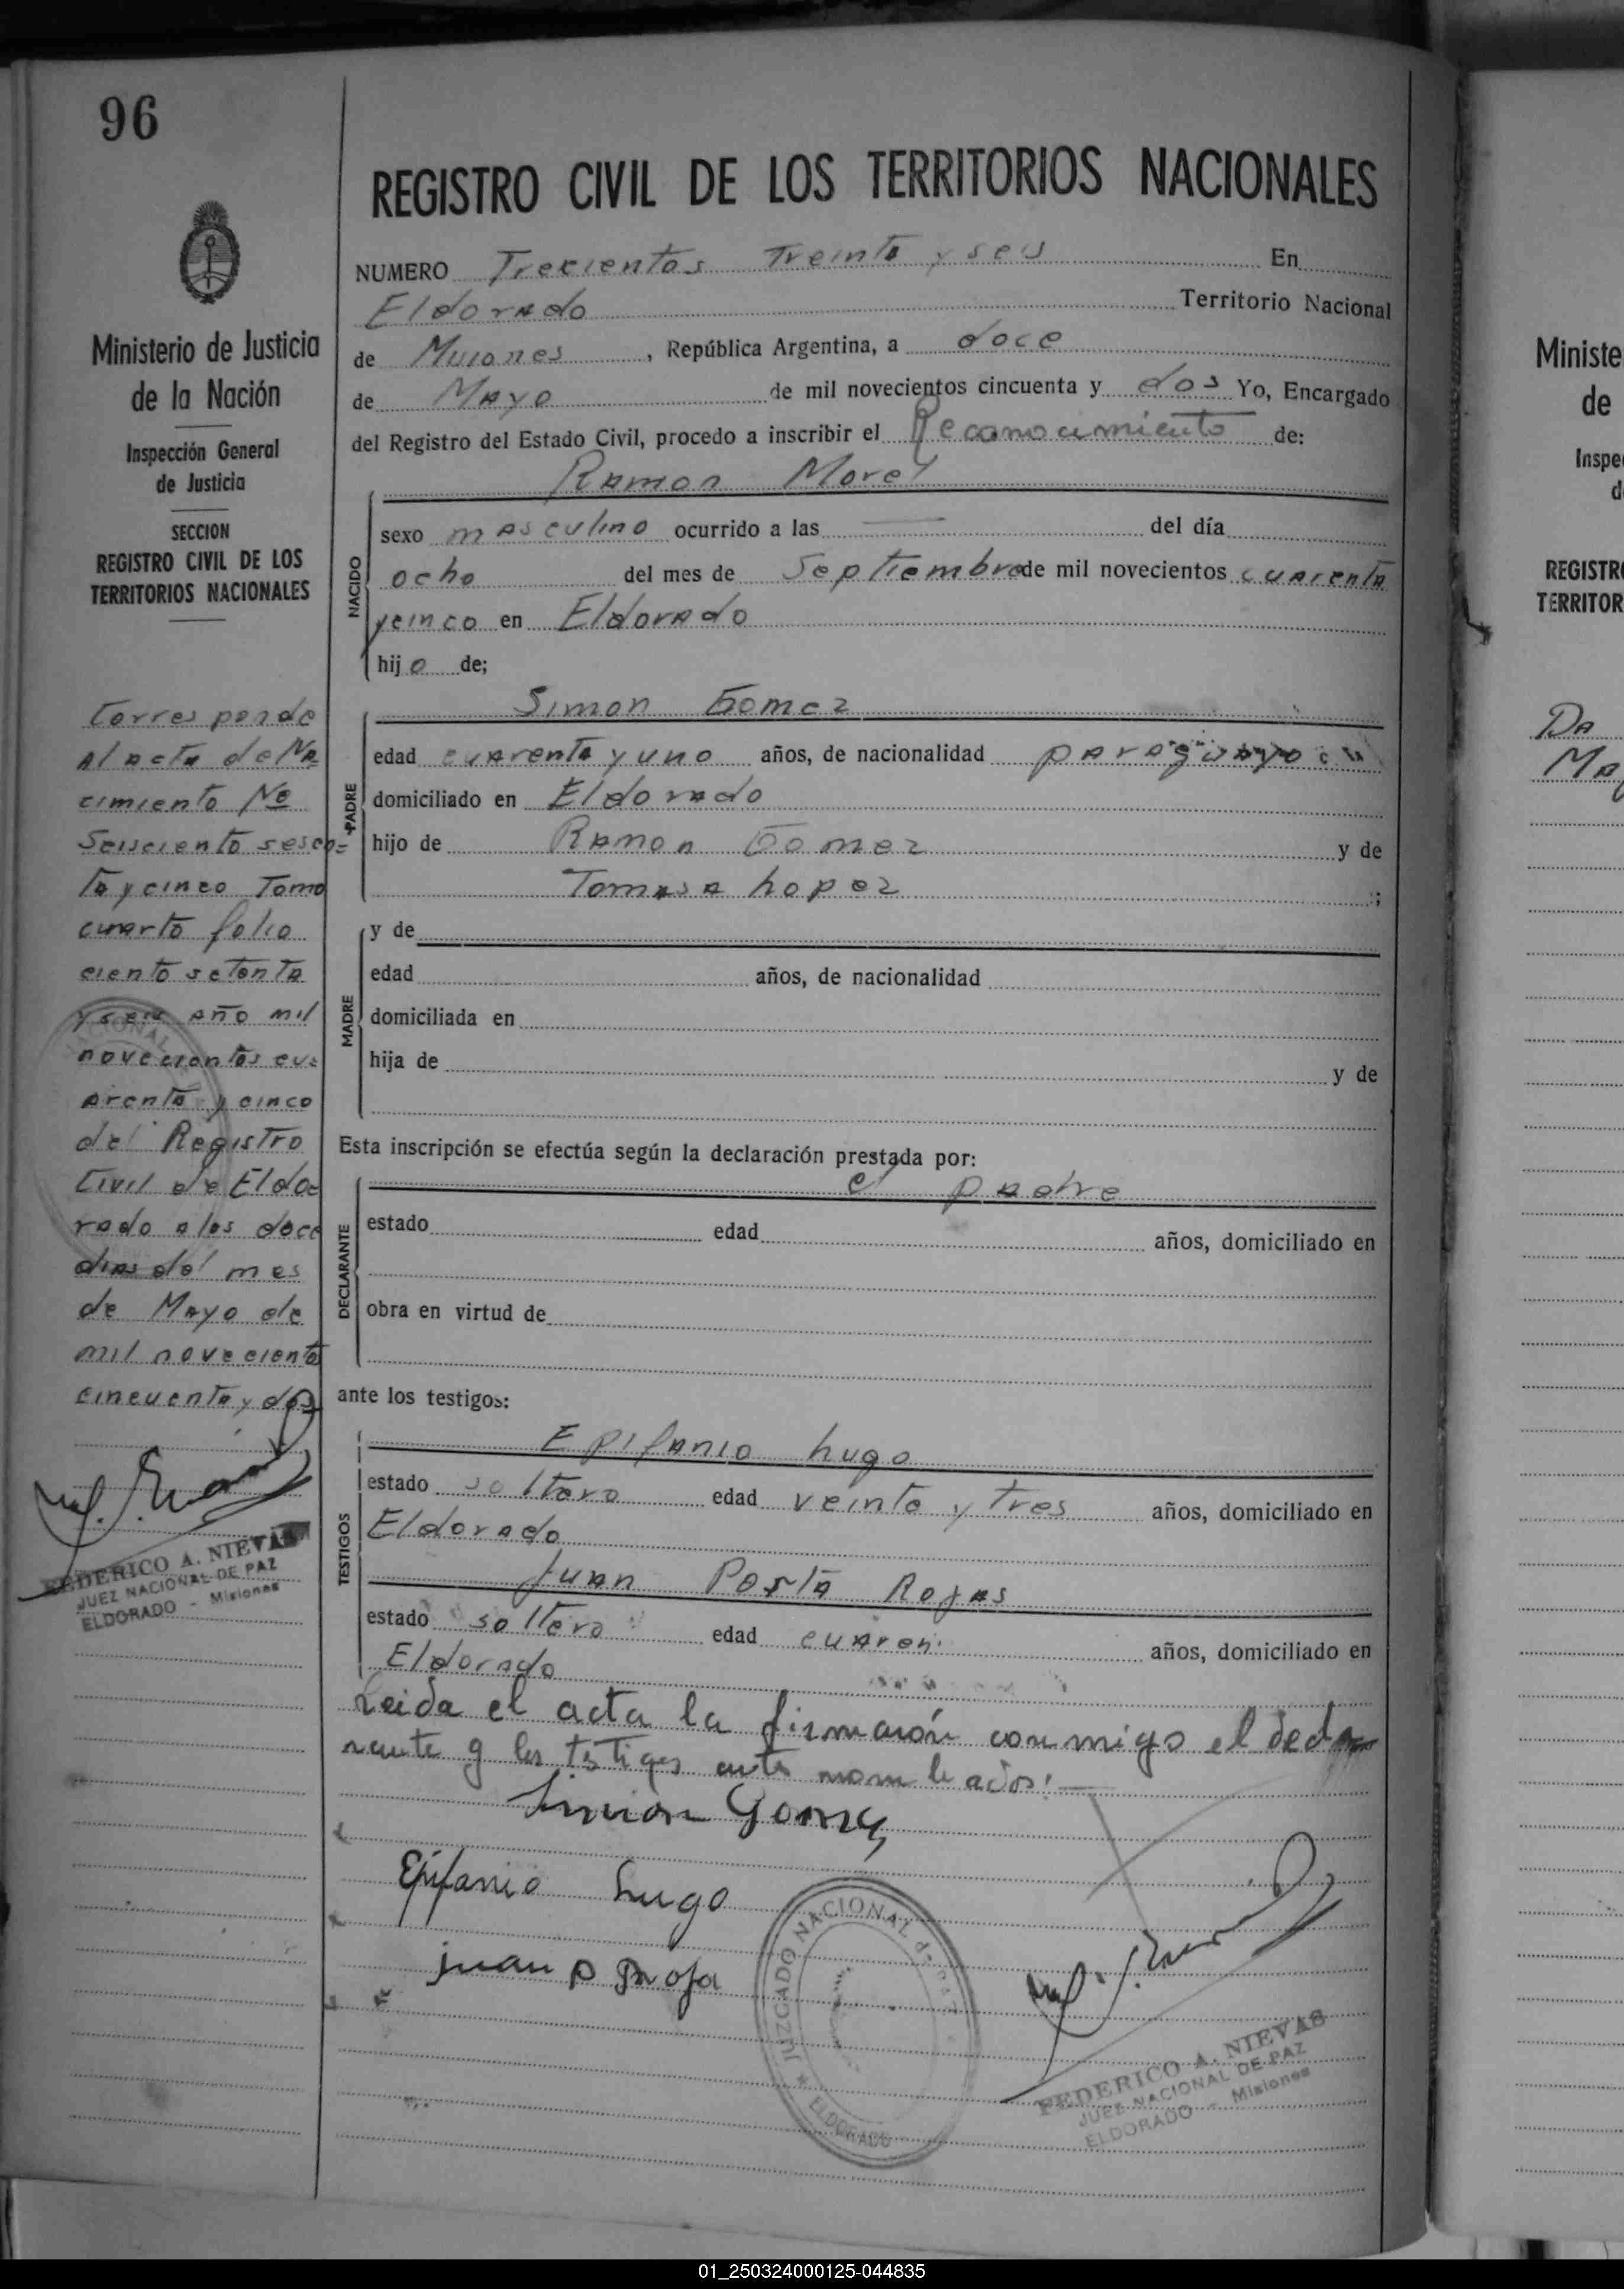 96
REGISTRO CIVIL DE LOS TERRITORIOS NACIONALES
NUMERO Trecientos Treinta y seis En
Eldorado Territorio Nacional
de Misiones, República Argentina, a doce
de Mayo de mil novecientos cincuenta y dos Yo, Encargado
del Registro del Estado Civil, procedo a inscribir el Reconocimiento de:
Ramon Morel
NACIDO
sexo masculino ocurrido a las — del día
ocho del mes de Septiembre de mil novecientos cuarenta
y cinco en Eldorado
hijo de;
PADRE
Simon Gomez
edad cuarenta y uno años, de nacionalidad paraguayo
domiciliado en Eldorado
hijo de Ramon Gomez y de
Tomasa Lopez ;
MADRE
y de
edad años, de nacionalidad
domiciliada en
hija de y de
Esta inscripción se efectúa según la declaración prestada por:
DECLARANTE
el padre
estado edad años, domiciliado en
obra en virtud de
ante los testigos:
TESTIGOS
Epifanio Lugo
estado soltero edad veinte y tres años, domiciliado en
Eldorado
Juan Rojas
estado soltero edad cuaren años, domiciliado en
Eldorado
Leida el acta la firmarón conmigo el decla
rante y los testigos antes nombrados:—
Simon Gomez
Epifanio Lugo
juan P Roja
JUZGADO NACIONAL de PAZ
ELDORADO
FEDERICO A. NIEVAS
JUEZ NACIONAL DE PAZ
ELDORADO - Misiones
Ministerio de Justicia
de la Nación
Inspección General
de Justicia
SECCION
REGISTRO CIVIL DE LOS
TERRITORIOS NACIONALES
Corresponde
al acta de Na
cimiento Nº
Seisciento sesen=
ta y cinco Tomo
cuarto folio
ciento setenta
y seis año mil
novecientos cu=
arenta y cinco
del Registro
Civil de Eldo=
rado a los doce
dias del mes
de Mayo de
mil noveciento
cincuenta y dos
FEDERICO A. NIEVAS
JUEZ NACIONAL DE PAZ
ELDORADO - Misiones
Ministe
de
Inspe
d
REGISTR
TERRITOR
Da
Ma
01_250324000125-044835